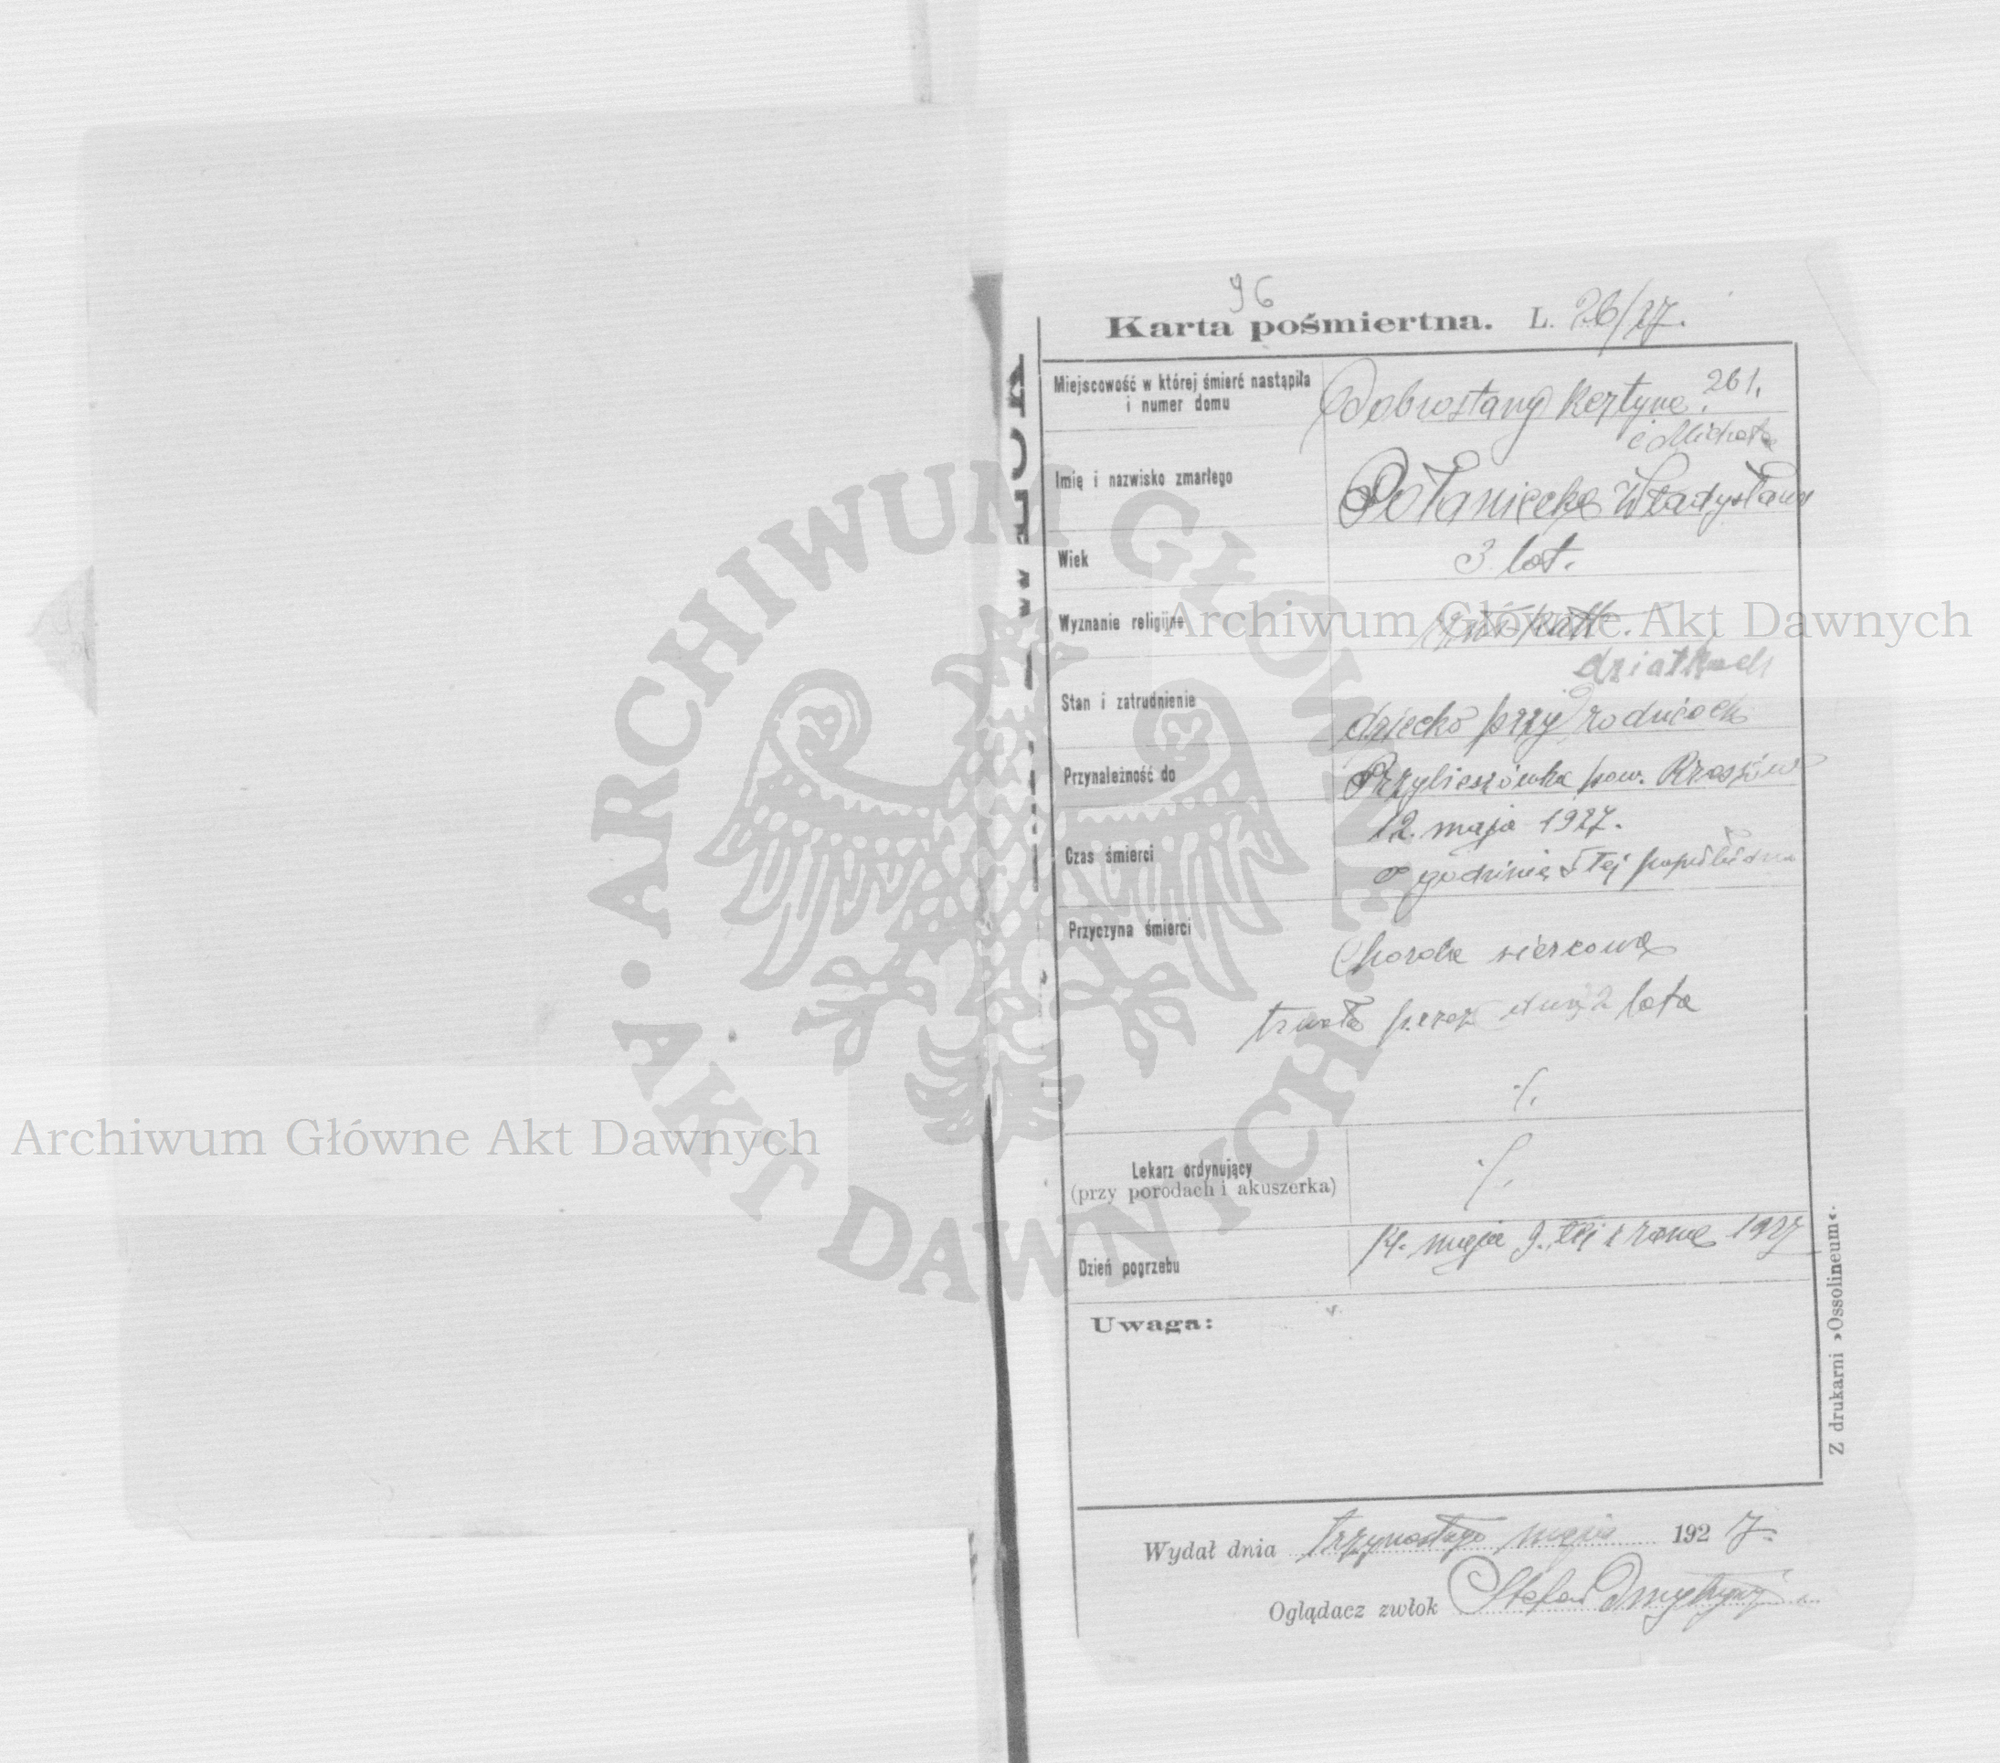 96
Karta pośmiertna. L. 26/27.
Miejscowość w której śmierć nastąpiła
i numer domu
Dobrostany Kertyna 261.
i Michała
Imię i nazwisko zmarłego
Połaniecka Władysława
Wiek
3 lat.
Wyznanie religijne
dziatkach
Stan i zatrudnienie
dziecko przy rodzicach
Przynależność do
Przybieszówka pow. Rzeszów
12. maja 1927.
Czas śmierci
o godzinie 5 tej popołudniu
Przyczyna śmierci
Choroba sercowa
trwała przez dwa 2 lata
./.
Lekarz ordynujący
(przy porodach i akuszerka)
./.
14. maja 9. tej z rana 1927
Dzień pogrzebu
Uwaga:
Z drukarni »Ossolineum«.
Wydał dnia trzynastego maja 1927.
Oglądacz zwłok Stefan
ARCHIWUM GŁÓWNE AKT DAWNYCH
Archiwum Główne Akt Dawnych
Archiwum Główne Akt Dawnych